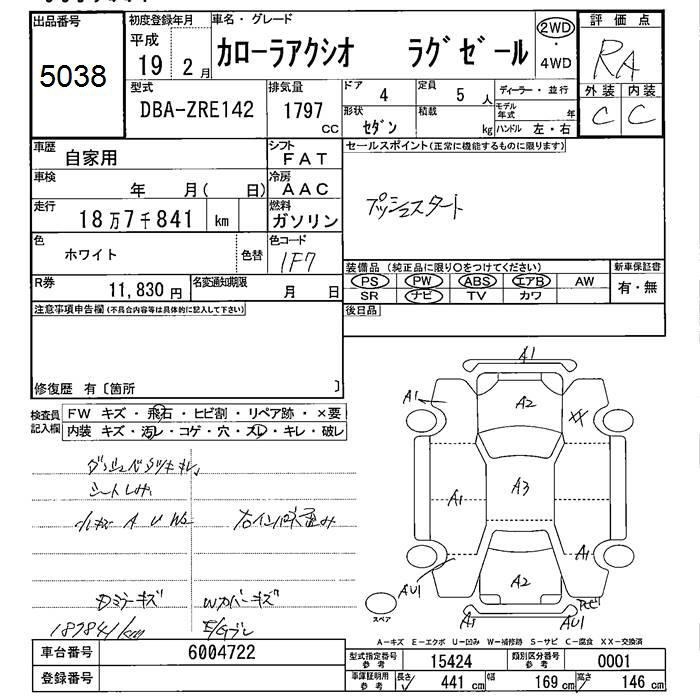 出品番号 初度登録年月 車名・グレード 2WD 評価点
5038 平成 19 2月 カローラアクシオ ラグゼール ・ 4WD RA
型式 排気量 ドア 4 定員 5人 ディーラー・並行 外装 内装
DBA-ZRE142 1797 cc 形状 セダン 積載 kg モデル年式 年 ハンドル 左・右 C C
車歴 自家用 シフト FAT セールスポイント(正常に機能するものに限ります)
車検 年 月( 日) 冷房 AAC
走行 18万7千841 km 燃料 ガソリン プッシュスタート
色 ホワイト 色替 色コード 1F7
装備品 (純正品に限り○をつけてください) 新車保証書
R券 11,830円 名変通知期限 月 日 PS PW ABS エアB AW 有・無
SR ナビ TV カワ
注意事項申告欄(不具合内容等は具体的に記入して下さい) 後日品
修復歴 有〔箇所 〕
検査員記入欄 FW キズ・飛石・ヒビ割・リペア跡・×要
内装 キズ・汚レ・コゲ・穴・スレ・キレ・破レ
シートしみ
小キズ A U W2
ミラーキズ Wカバーキズ
187841km E/Gブレ
A1
A1 A2 XX
A1 A3
A1
AU1 A2
スペア A1 AU1
A-キズ E-エクボ U-凹み W-補修跡 S-サビ C-腐食 XX-交換済
車台番号 6004722 型式指定番号 参考 15424 類別区分番号 参考 0001
登録番号 車庫証明用 参考 長さ 441 cm 幅 169 cm 高さ 146 cm